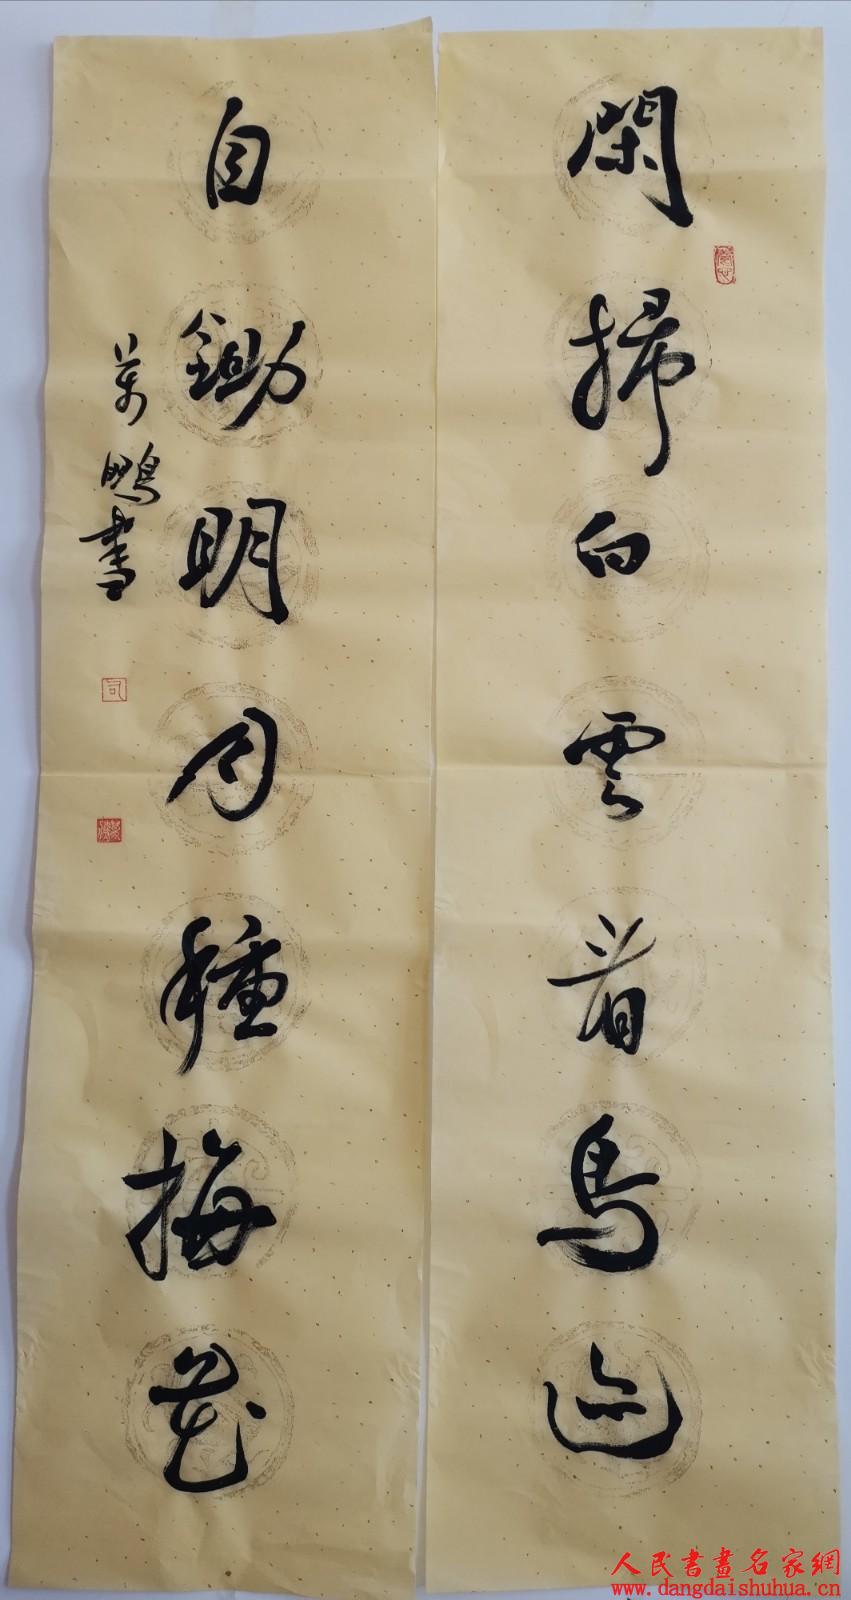 閑掃白雲看鳥迹
自鋤明月種梅花
萬鵬書
人民書畫名家網
www.dangdaishuhua.cn